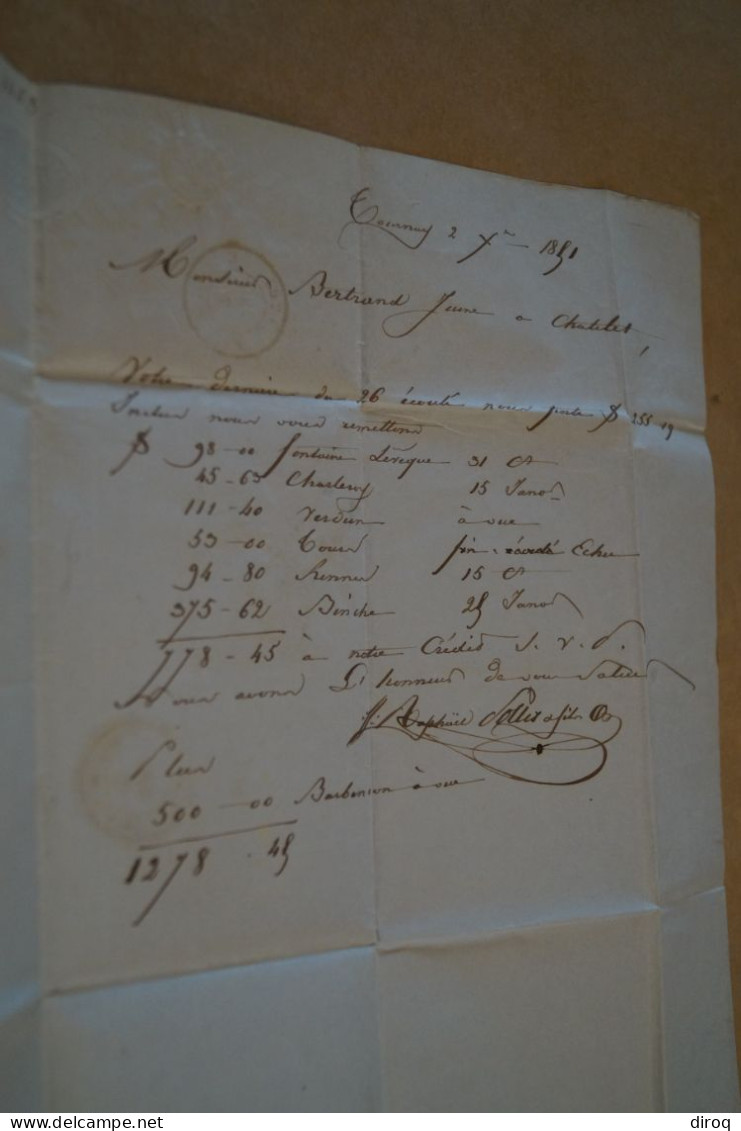 Tournay 2 Xbre 1851
Monsieur Bertrand Jeune a Chatelet,
Votre dernière du 26 écoulé nous porte 255 19
Inclus nous vous remettons
98-00 fontaine Léveque 31 Ct
45-63 Charleroy 15 Janv
111-40 Verdun à vue
53-00 Tours fin écoulé Echu
94-80 Rennes 15 Ct
375-62 Binche 25 Janv
778-45 à notre Crédit S.V.P.
Nous avons L'honneur de vous Saluer
Raphaël & fils
Plus
500-00 Barbencon à vue
1278-45
diroq